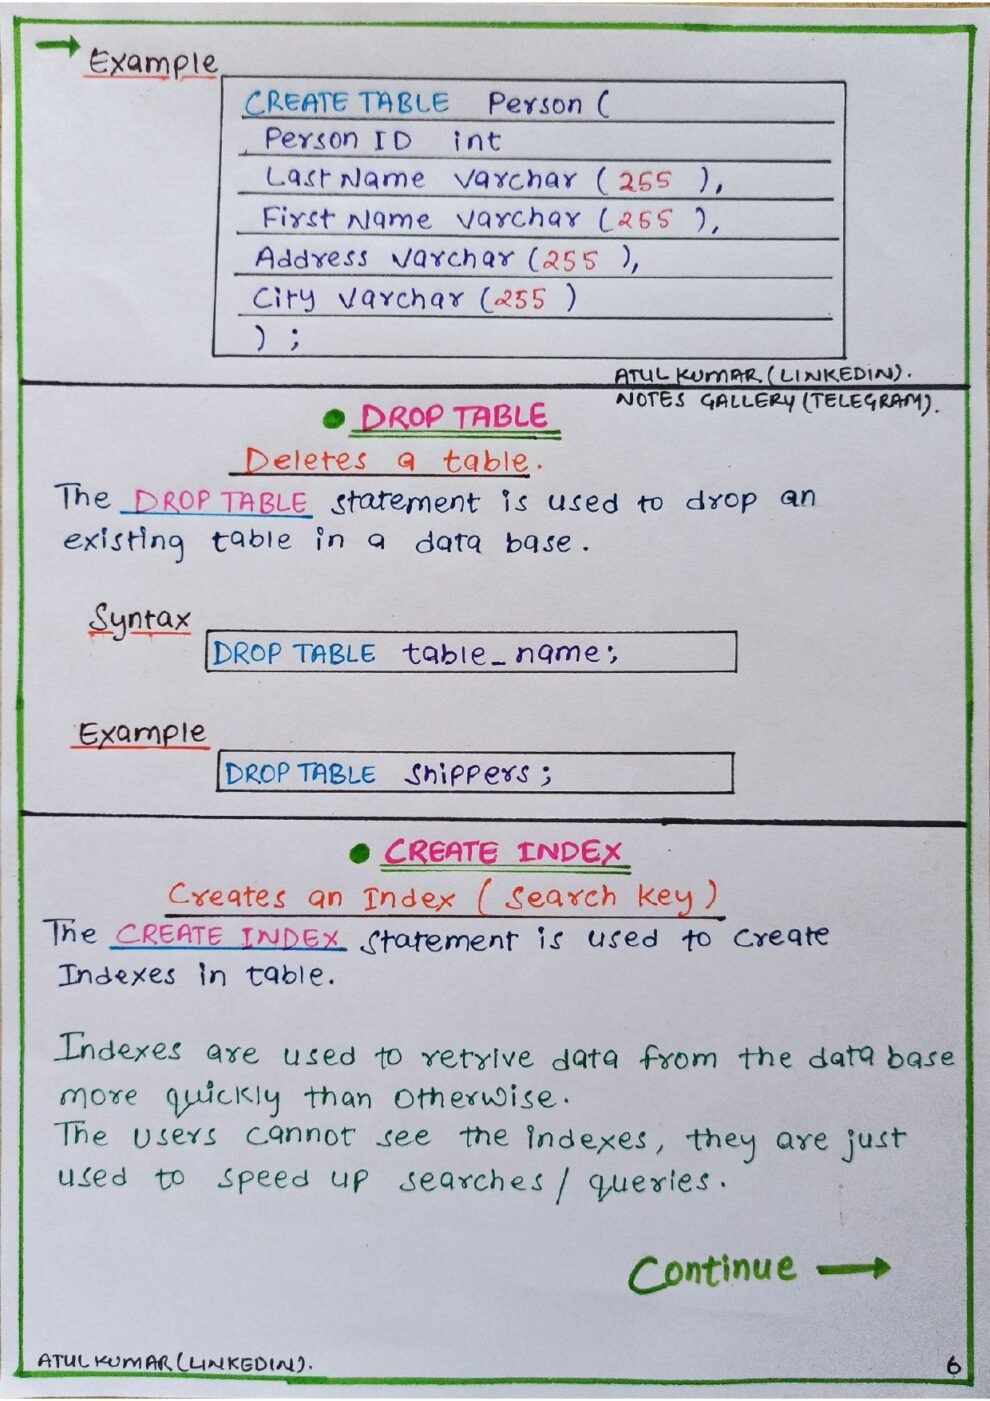 Example
CREATE TABLE Person (
Person ID int
Last Name varchar (255),
First Name varchar (255),
Address varchar (255),
City varchar (255)
);
ATUL KUMAR (LINKEDIN).
NOTES GALLERY (TELEGRAM).
DROP TABLE
Deletes a table.
The DROP TABLE statement is used to drop an
existing table in a data base.
Syntax
DROP TABLE table_name;
Example
DROP TABLE shippers;
CREATE INDEX
Creates an Index (Search key)
The CREATE INDEX statement is used to create
Indexes in table.
Indexes are used to retrive data from the data base
more quickly than otherwise.
The users cannot see the indexes, they are just
used to speed up searches/queries.
Continue →
ATUL KUMAR (LINKEDIN).
6